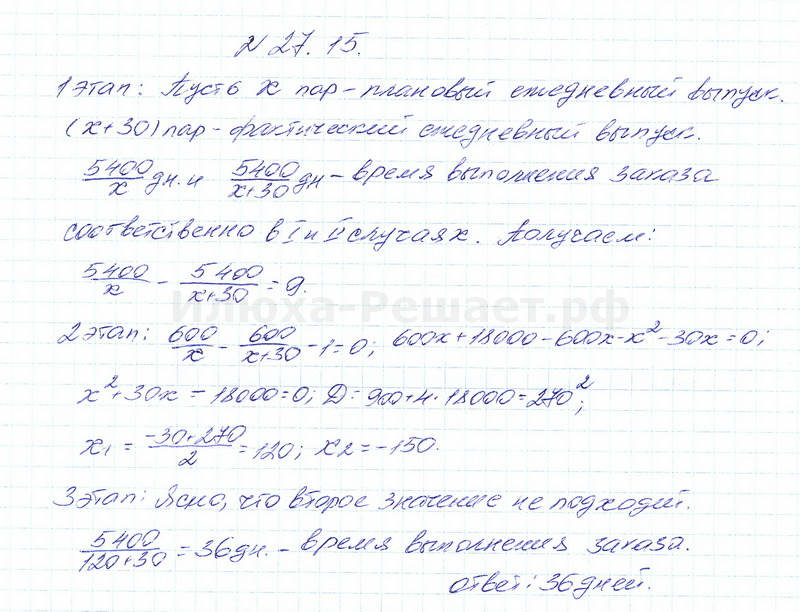 N 27. 15.
1 этап: Пусть x пар - плановый ежедневный выпуск.
(x+30) пар - фактический ежедневный выпуск.
5400/x дн. и 5400/(x+30) дн - время выполнения заказа
соответственно в I и II случаях. Получаем:
5400/x - 5400/(x+30) = 9.
Илюха-Решает.рф
2 этап: 600/x - 600/(x+30) - 1 = 0; 600x+18000-600x-x²-30x=0;
x²+30x-18000=0; D=900+4·18000=270²;
x₁ = (-30+270)/2 = 120; x₂ = -150.
3 этап: Ясно, что второе значение не подходит.
5400/(120+30) = 36 дн. - время выполнения заказа.
ответ: 36 дней.